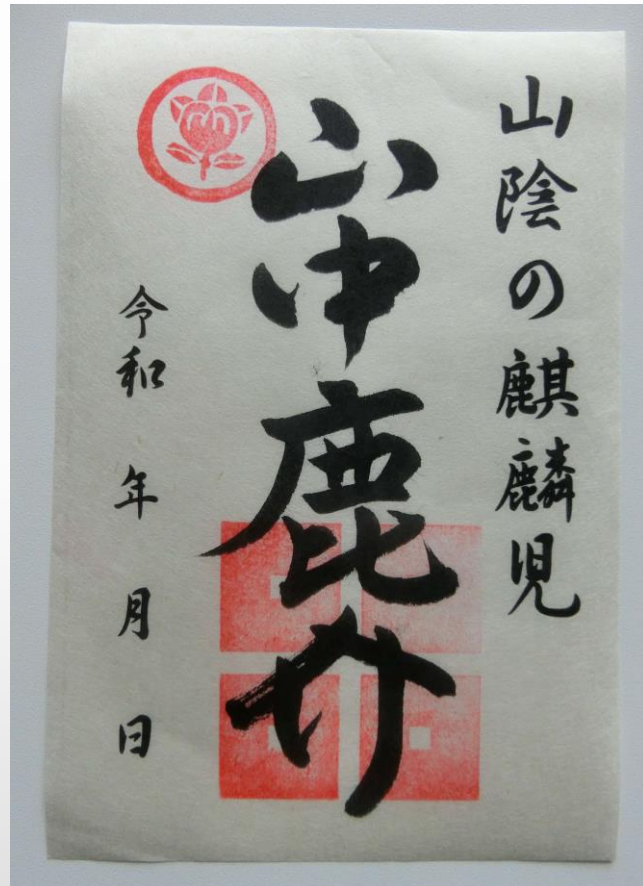 山陰の麒麟児
山中鹿介
令和 年 月 日